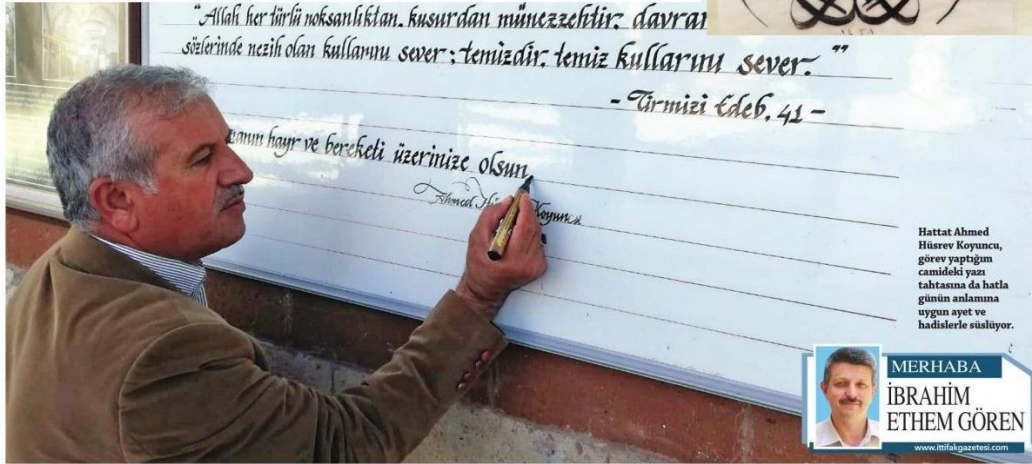 “Allah her türlü noksanlıktan, kusurdan münezzehtir; davran
sözlerinde nezih olan kullarını sever; temizdir, temiz kullarını sever.”
- Tirmizi Edeb, 41 -
hayr ve bereketi üzerinize olsun,
Koyuncu
Hattat Ahmed
Hüsrev Koyuncu,
görev yaptığım
camideki yazı
tahtasına da hatla
günün anlamına
uygun ayet ve
hadislerle süslüyor.
MERHABA
İBRAHİM
ETHEM GÖREN
www.ittifakgazetesi.com